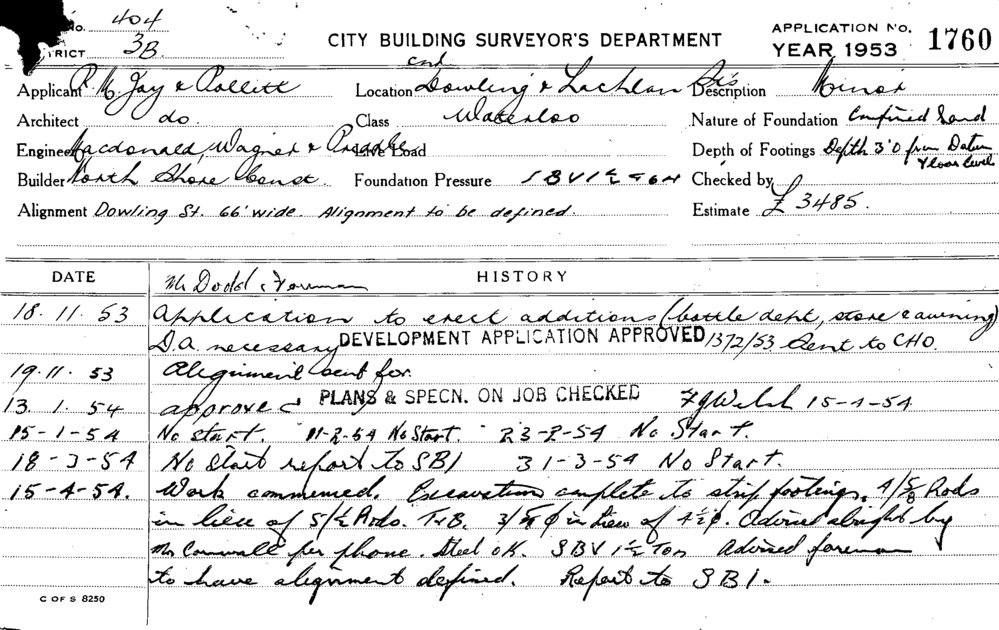 No. 404
TRICT 3B.
CITY BUILDING SURVEYOR'S DEPARTMENT
APPLICATION No. 1760
YEAR 1953
Applicant P. M. Jay & Pollitt
Location cnr Dowling & Lachlan St's
Description Minor
Architect do.
Class Waterloo
Nature of Foundation Confined Sand
Engineer Macdonald, Wagner & Priddle
Live Load
Depth of Footings Depth 3'0 from Datum Floor level
Builder North Shore Const.
Foundation Pressure SBV 1½ Ton
Checked by
Alignment Dowling St. 66' wide. Alignment to be defined.
Estimate £ 3485.
DATE
HISTORY
Mr Dodd, Foreman
18. 11. 53 Application to erect additions (bottle dept, store & awning)
D.A. necessary DEVELOPMENT APPLICATION APPROVED 1372/53 Sent to CHO.
19. 11. 53 Alignment sent for.
13. 1. 54 approved PLANS & SPECN. ON JOB CHECKED FJWelsh 15-4-54
15-1-54 No start. 11-2-54 No Start. 23-2-54 No Start.
18-3-54 No Start report to SBI 31-3-54 No Start.
15-4-54. Work commenced. Excavations complete to strip footings. 4/5/8 Rods
in lieu of 5/½ Rods. T&B. in lieu of 4½φ. Advised alright by
Mr Cornwall per phone. Steel OK. SBV 1½ Ton Advised foreman
to have alignment defined. Report to SBI.
C OF S 8250